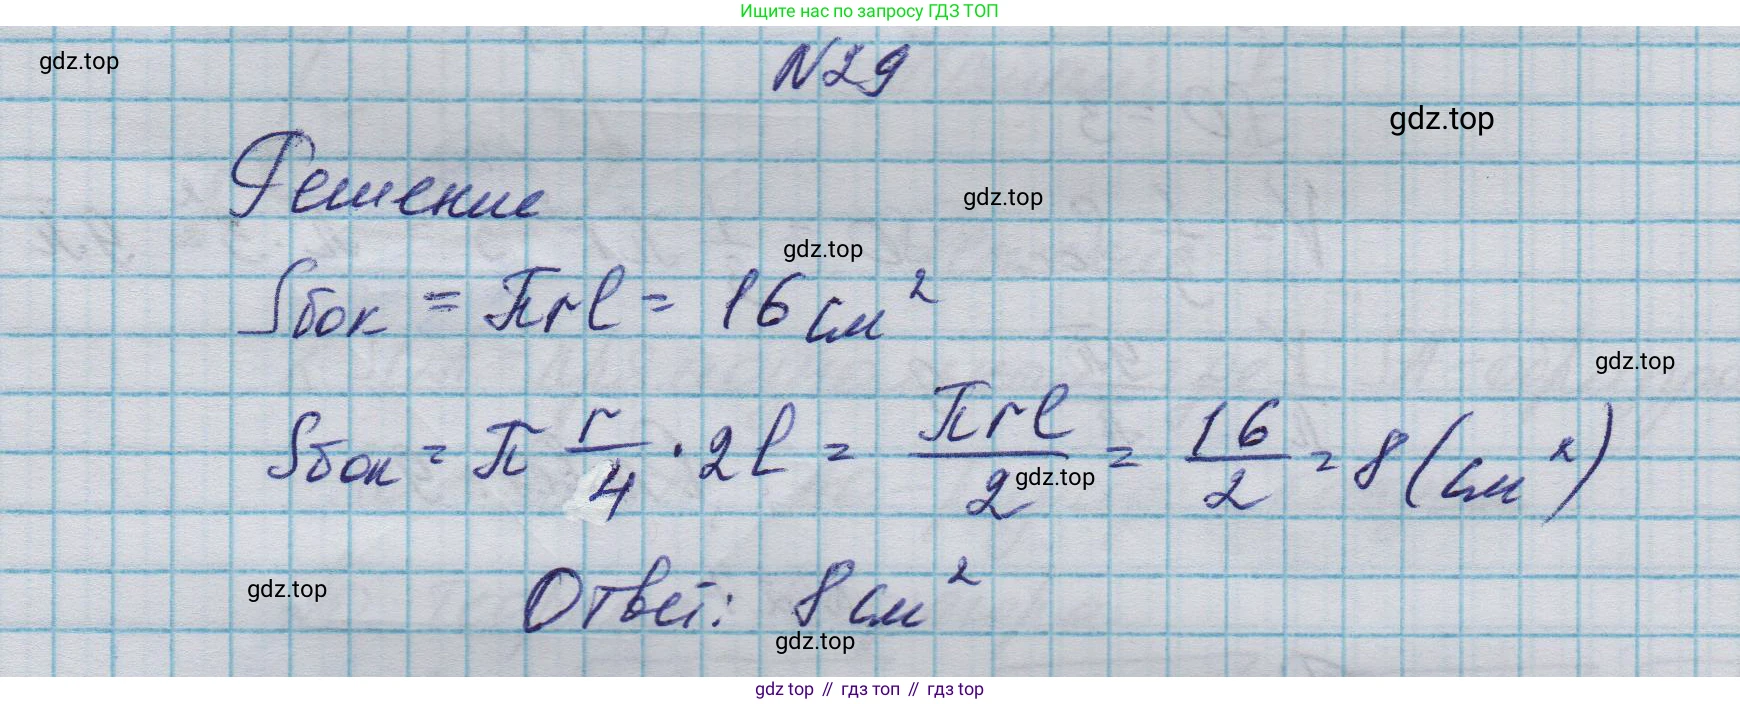 Ищите нас по запросу ГДЗ ТОП
gdz.top
N29
gdz.top
Решение
gdz.top
gdz.top
Sбок = πrl = 16 см²
gdz.top
Sбок = π r/4 · 2l = πrl/2 = 16/2 = 8 (см²)
gdz.top
gdz.top
Ответ: 8 см²
gdz.top
gdz top // гдз топ // гдз top